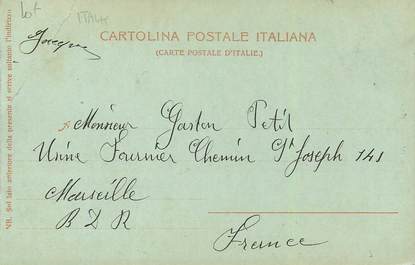 lot ITALIE
CARTOLINA POSTALE ITALIANA
(CARTE POSTALE D'ITALIE.)
NB. Sul lato anteriore della presente si scrive soltanto l'indirizzo
Monsieur Gaston Petit
Usine Fournier Chemin St Joseph 141
Marseille
B D R
France